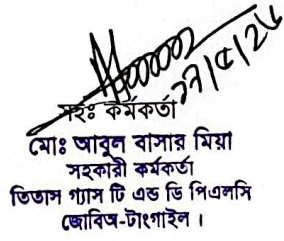 ২৭/৫/২৫
সহঃ কর্মকর্তা
মোঃ আবুল বাসার মিয়া
সহকারী কর্মকর্তা
তিতাস গ্যাস টি এন্ড ডি পিএলসি
জোবিঅ-টাংগাইল।